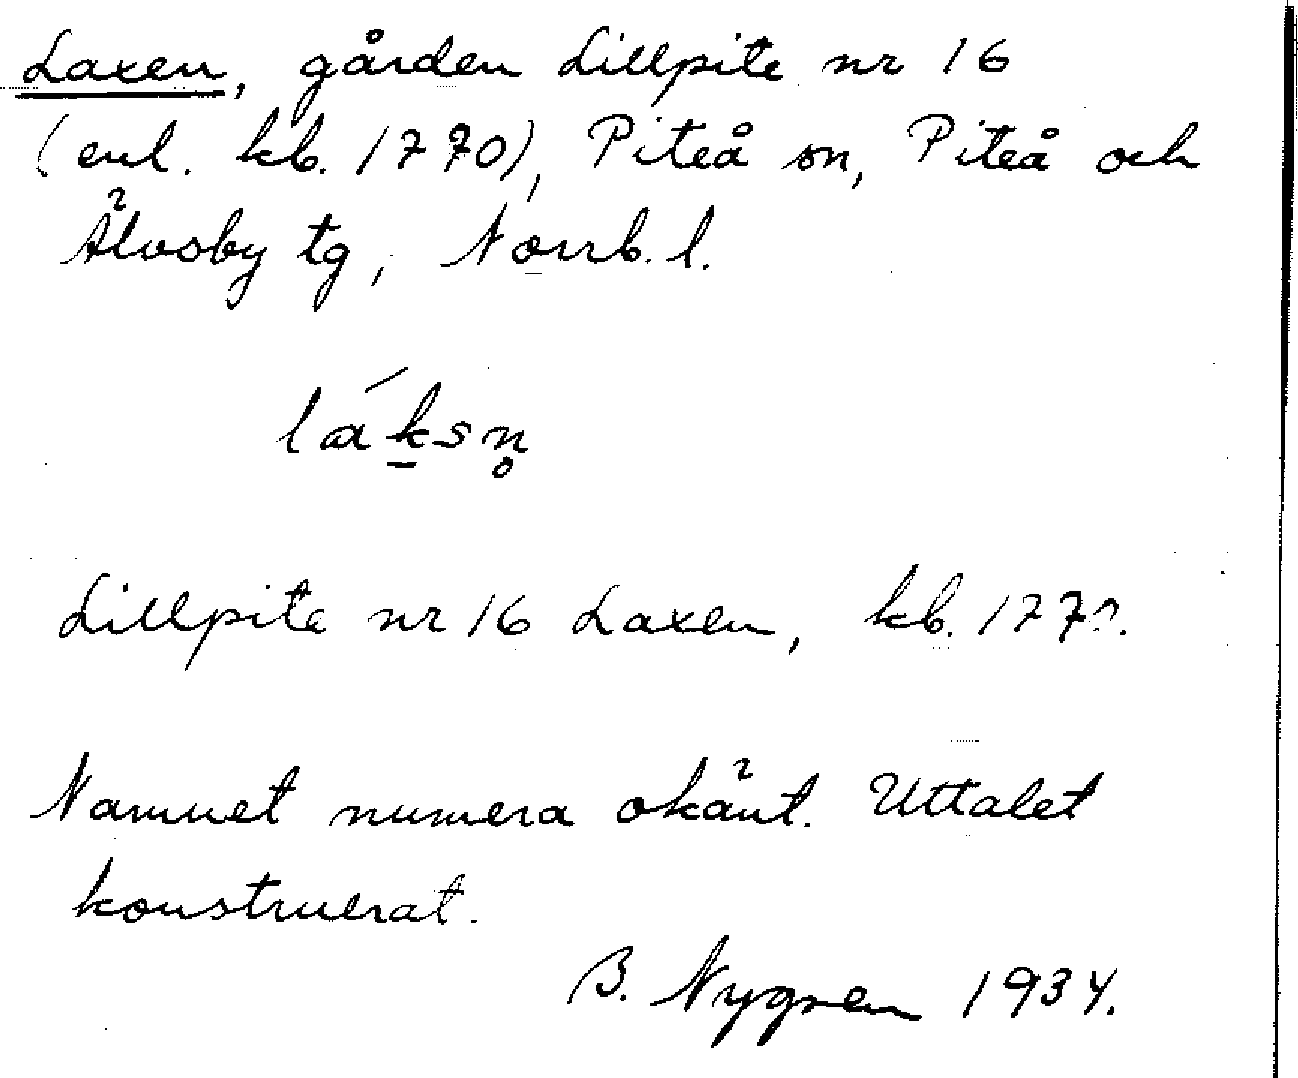 Laxen, gården Lillpite nr 16
(enl. kb. 1770), Piteå sn, Piteå och
Älvsby tg, Norrb. l.
lák̲sn̥
Lillpite nr 16 Laxen, kb. 1770.
Namnet numera okänt. Uttalet
konstruerat.
B. Nygren 1934.